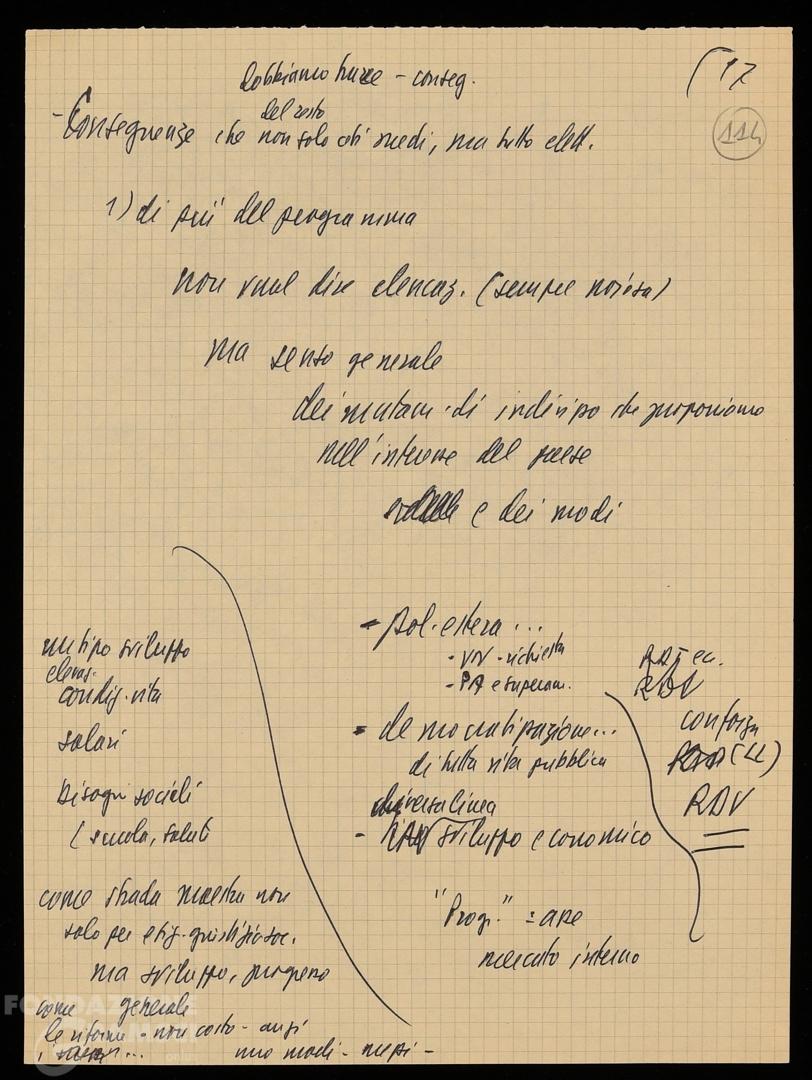 17
114
dobbiamo trarre - conseg.
del resto
- Conseguenze che non solo ceti medi, ma tutto elett.
1) di più del programma
non vuol dire elencaz. (sempre noiosa)
ma senso generale
dei mutam. di indirizzo che proponiamo
nell'interesse del paese
e dei modi
- pol. estera ...
- VN - richiesta
- PA e superam.
- democratizzazione...
di tutta vita pubblica
diversa linea
- sviluppo economico
"Progr." =
mercato interno
RDV
conforza
RDV
un tipo sviluppo
elevaz.
condiz. vita
salari
bisogni sociali
(scuola, salute
come strada maestra non
solo per esig. giustizia soc.
ma sviluppo, progresso
come generale
le riforme - non costo - anzi
uno modi - mezzi -
FONDAZIONE